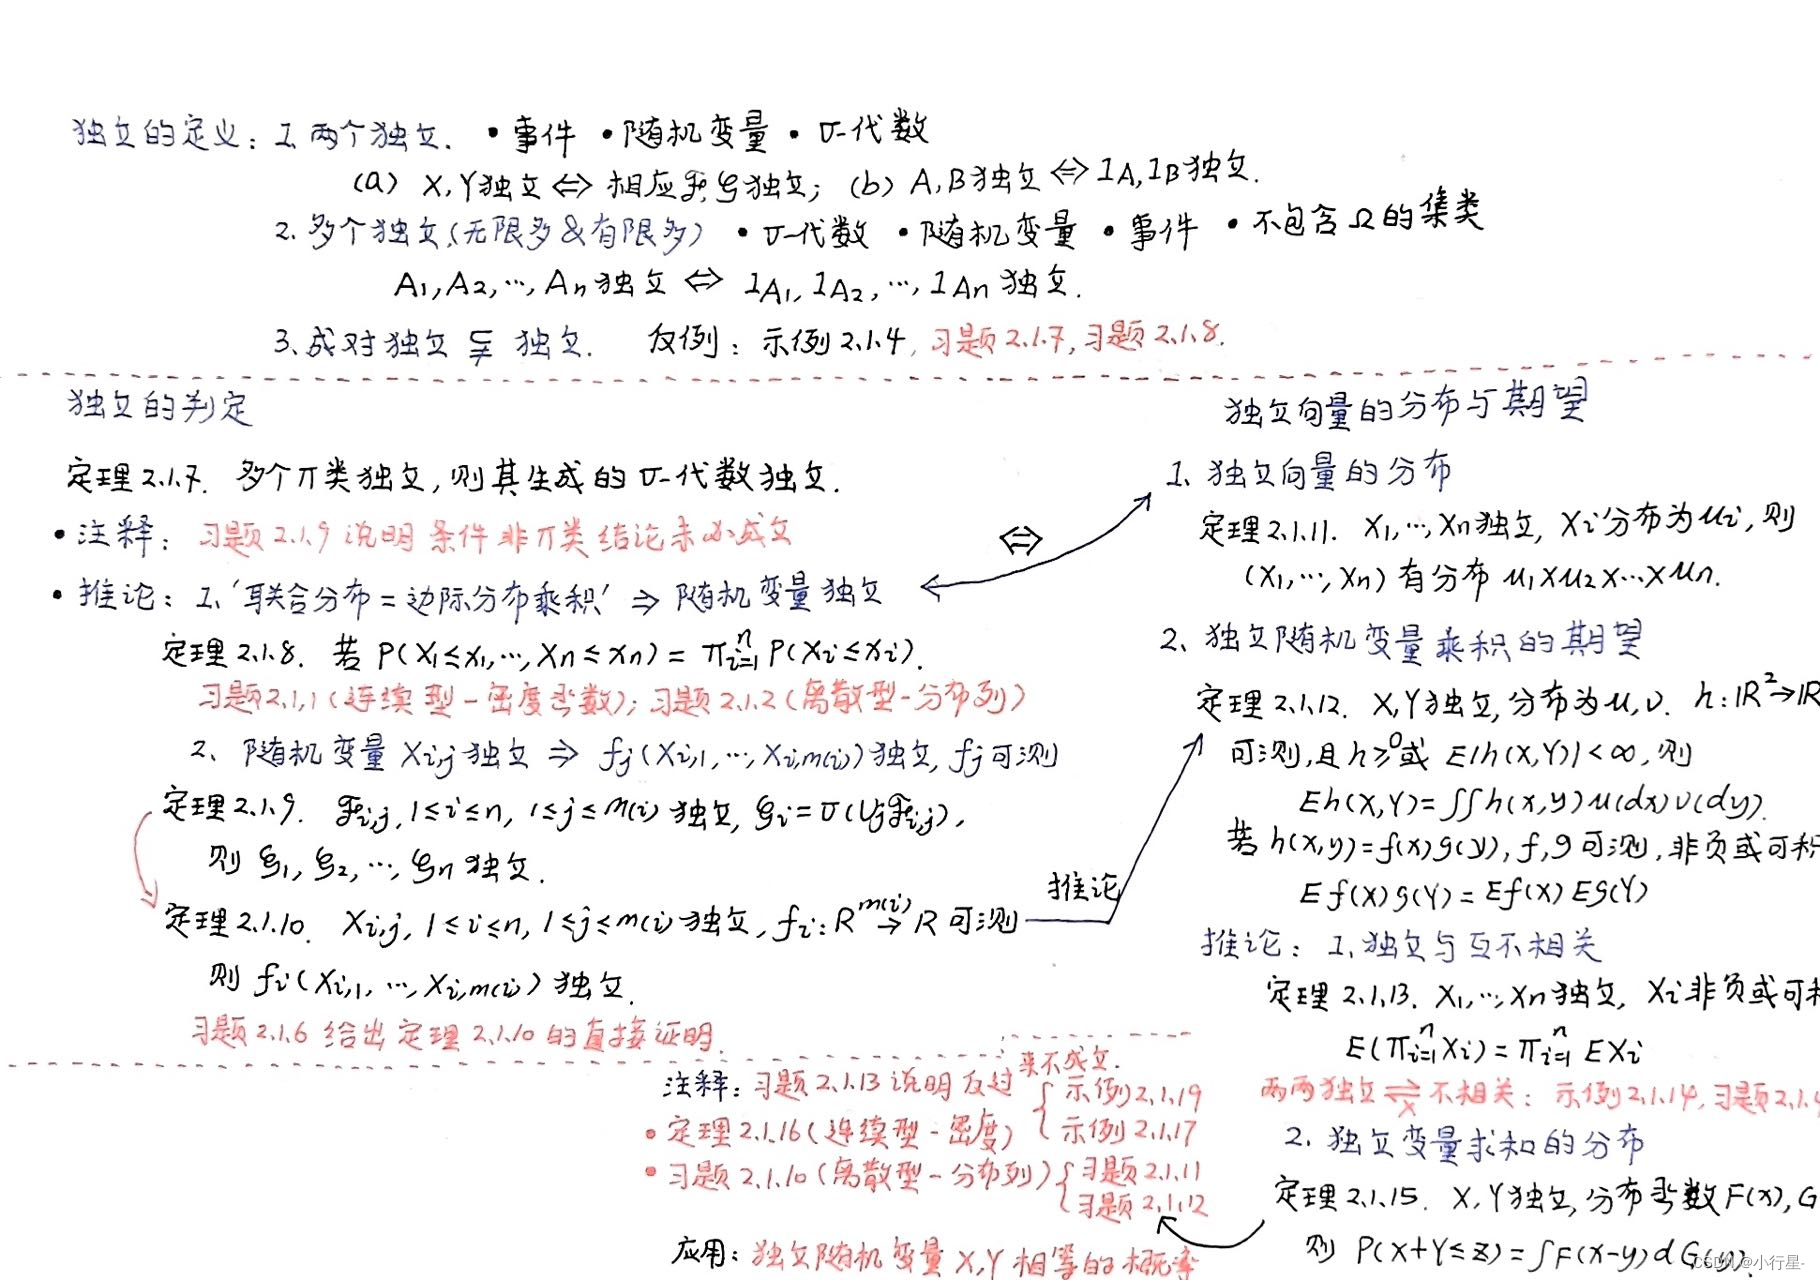 独立的定义: 1. 两个独立. • 事件 • 随机变量 • σ-代数
(a) X,Y独立 ⇔ 相应 𝓕, 𝓖 独立; (b) A,B独立 ⇔ 1A, 1B 独立.
2. 多个独立(无限多&有限多) • σ-代数 • 随机变量 • 事件 • 不包含Ω的集类
A1, A2, ..., An 独立 ⇔ 1A1, 1A2, ..., 1An 独立.
3. 成对独立 ⊊ 独立. 反例: 示例2.1.4, 习题2.1.7, 习题2.1.8.
独立的判定
定理2.1.7. 多个π类独立, 则其生成的σ-代数独立.
• 注释: 习题2.1.9 说明条件非π类结论未必成立
• 推论: 1. '联合分布=边际分布乘积' ⇒ 随机变量独立
定理2.1.8. 若 P(X1≤x1, ..., Xn≤xn) = π_{i=1}^n P(Xi≤xi).
习题2.1.1 (连续型-密度函数); 习题2.1.2 (离散型-分布列)
2. 随机变量 Xi,j 独立 ⇒ fj(Xi,1, ..., Xi,m(i)) 独立, fj可测
定理2.1.9. 𝓕i,j, 1≤i≤n, 1≤j≤m(i) 独立, 𝓖i = σ(∪j 𝓕i,j),
则 𝓖1, 𝓖2, ..., 𝓖n 独立.
定理2.1.10. Xi,j, 1≤i≤n, 1≤j≤m(i) 独立, fi: R^m(i) → R 可测
则 fi(Xi,1, ..., Xi,m(i)) 独立.
习题2.1.6 给出定理2.1.10的直接证明.
⇔
推论
独立向量的分布与期望
1. 独立向量的分布
定理2.1.11. X1, ..., Xn独立, Xi分布为μi, 则
(X1, ..., Xn) 有分布 μ1×μ2×...×μn.
2. 独立随机变量乘积的期望
定理2.1.12. X,Y独立, 分布为μ,ν. h: ℝ²→ℝ
可测, 且 h≥0 或 E|h(X,Y)|<∞, 则
Eh(X,Y) = ∫∫h(x,y)μ(dx)ν(dy).
若 h(x,y) = f(x)g(y), f,g可测, 非负或可积
Ef(X)g(Y) = Ef(X) Eg(Y)
推论: 1. 独立与互不相关
定理2.1.13. X1, ..., Xn独立, Xi非负或可积
E(π_{i=1}^n Xi) = π_{i=1}^n EXi
两两独立 ⇌ 不相关: 示例2.1.14, 习题2.1.4
x
2. 独立变量求和的分布
定理2.1.15. X,Y独立, 分布函数F(x), G
则 P(X+Y≤z) = ∫F(x-y)dG(y)
注释: 习题2.1.13 说明反过来不成立.
• 定理2.1.16 (连续型-密度) { 示例2.1.19
示例2.1.17
• 习题2.1.10 (离散型-分布列) { 习题2.1.11
习题2.1.12
应用: 独立随机变量X,Y相等的概率
CSDN @小行星-